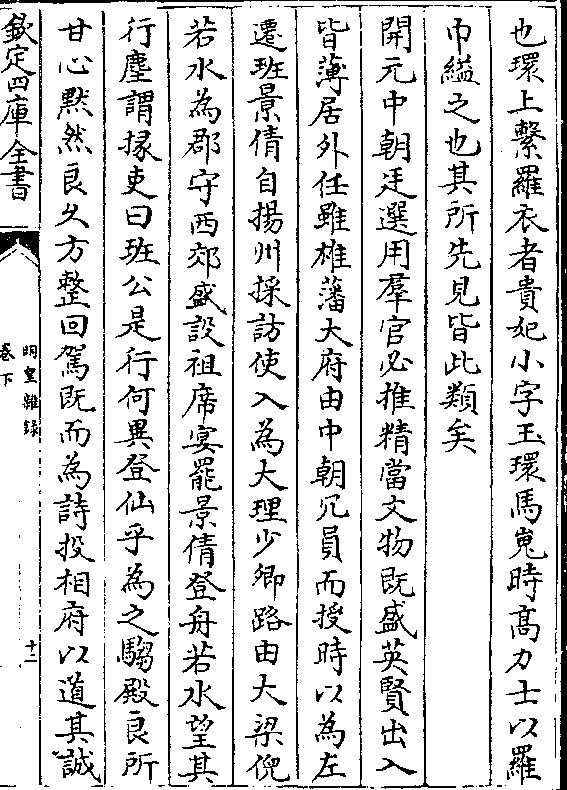 也環上繫羅衣者貴妃小字玉環馬嵬時髙力士以羅
巾縊之也其所先見皆此類矣
開元中朝廷選用羣官必推精當文物既盛英賢出入
皆薄居外任雖雄藩大府由中朝冗員而授時以為左
遷班景倩自揚州採訪使入為大理少卿路由大梁倪
若水為郡守西郊盛設祖席宴罷景倩登舟若水望其
行塵謂掾吏曰班公是行何異登仙乎為之騶殿良所
甘心黙然良久方整回駕既而為詩投相府以道其誠
欽定四庫全書
明皇雜録
卷下
十二